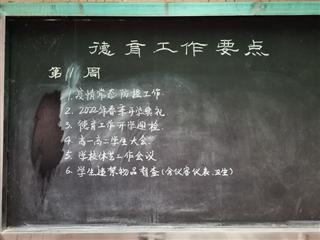 德育工作要点
第11周
1.疫情常态防控工作
2.2022年春季开学典礼
3.德育工作开学迎检
4.高一高二学生大会
5.学校体艺工作会议
6.学生违禁物品自查(含仪容仪表、卫生)